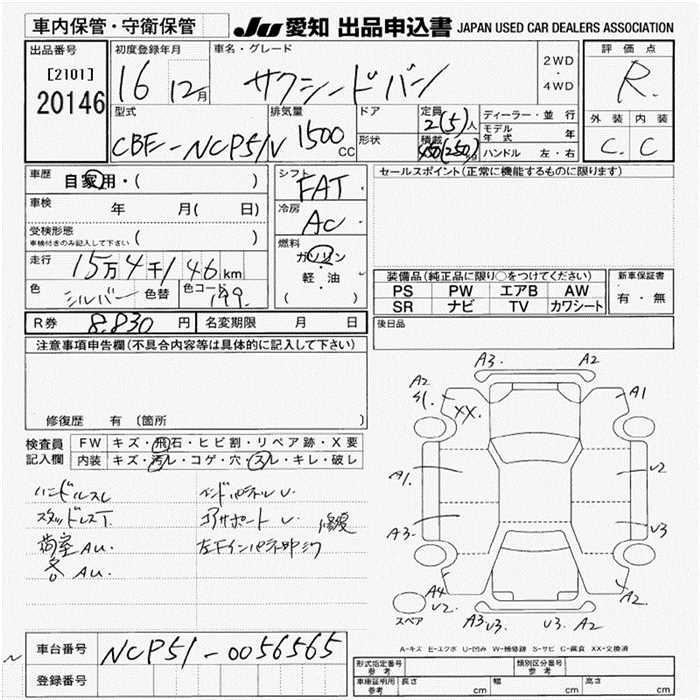 車内保管・守衛保管 JU 愛知 出品申込書 JAPAN USED CAR DEALERS ASSOCIATION
出品番号 初度登録年月 車名・グレード 2WD 評価点
[2101] 16 12月 サクシードバン ・ R
20146 4WD
型式 排気量 ドア 定員 ディーラー・並行 外装 内装
CBE-NCP51V 1500 CC 2(5)人 モデル年式 年 C C
形状 積載 450(250)kg ハンドル 左・右
車歴 自家用・( ) シフト FAT セールスポイント(正常に機能するものに限ります)
車検 年 月( 日) 冷房 AC
受検形態
車検付きのみ記入して下さい ( ) 燃料
走行 15万4千146km ガソリン
軽・油
( )
色 シルバー 色替 色コード 199
装備品(純正品に限り○をつけてください) 新車保証書
PS PW エアB AW 有・無
SR ナビ TV カワシート
R券 8,830 円 名変期限 月 日 後日品
注意事項申告欄(不具合内容等は具体的に記入して下さい)
修復歴 有 〔箇所 〕
検査員 FW キズ・飛石・ヒビ割・リペア跡・X要
記入欄 内装 キズ・汚レ・コゲ・穴・スレ・キレ・破レ
ハンドルスレ
スタッドレスT. コアサポート U. 修復
荷室 AU.
各 AU.
A3 A2
A2 XX. A1
A1. U2
A3. U3
A4 U2. A3 U3. U3. A2 A2
スペア
A-キズ E-エクボ U-凹み W-補修跡 S-サビ C-腐食 XX-交換済
車台番号 NCP51-0056565
登録番号
形式指定番号 参考 類別区分番号 参考
車庫証明用 参考 長さ cm 幅 cm 高さ cm